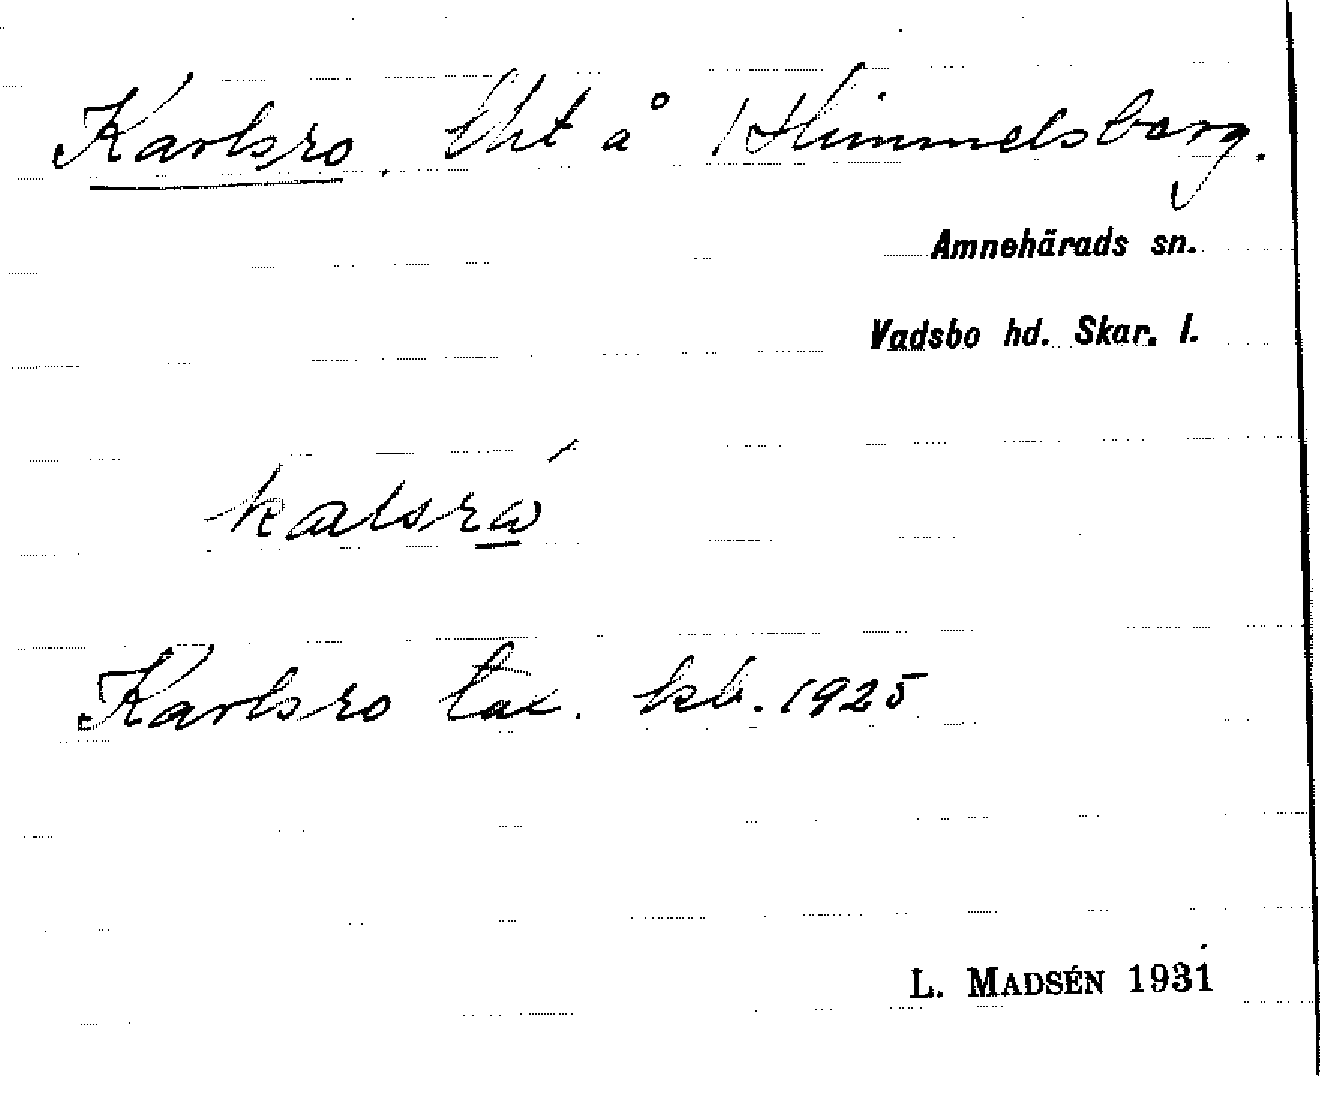 Karlsro. lht å /Himmelsberg.
Amnehärads sn.
Vadsbo hd. Skar. l.
Karlsro tax. kb. 1925
L. MADSÉN 1931